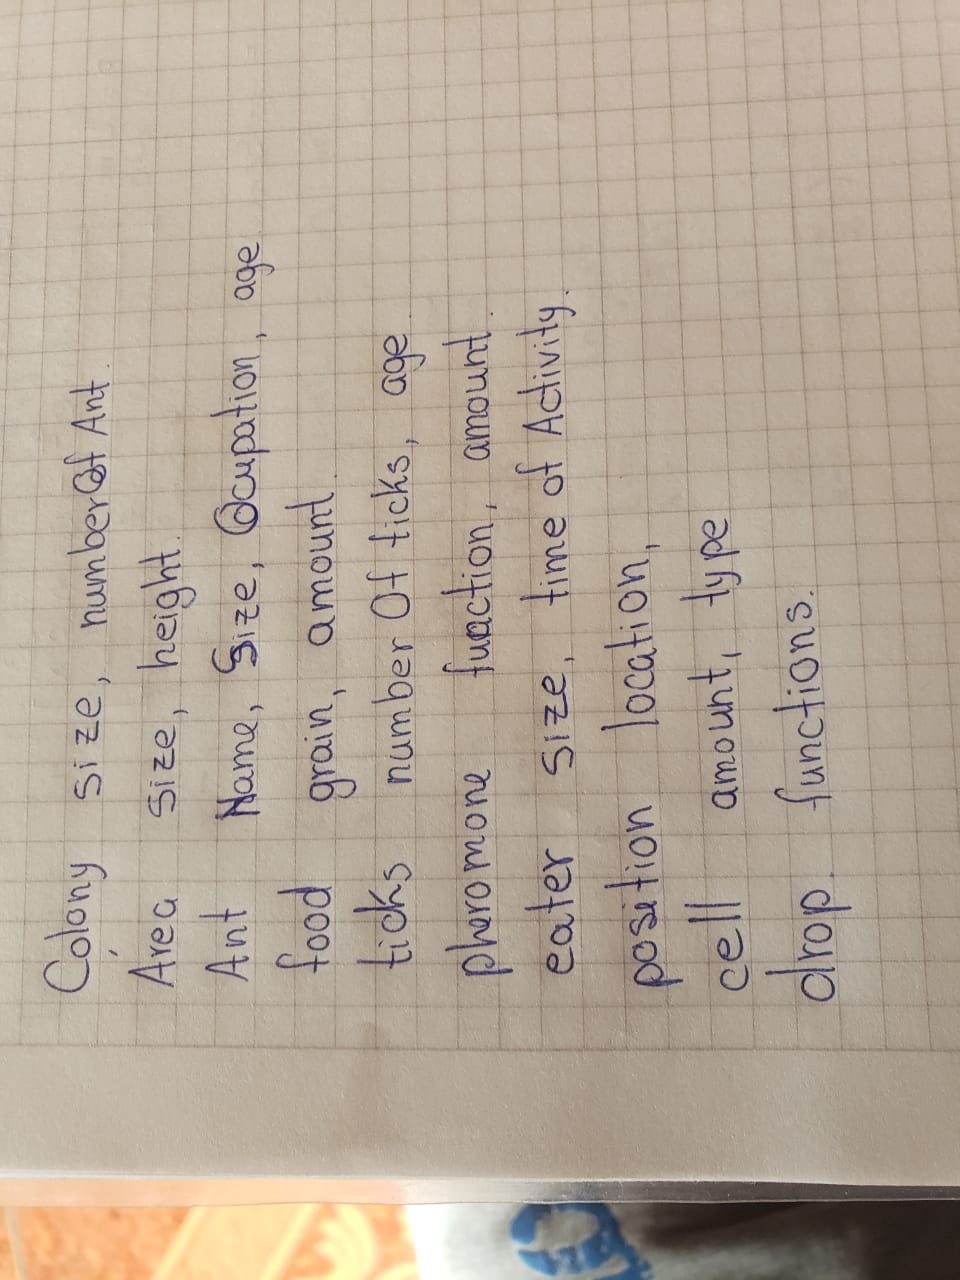 Colony size, numberOf Ant.
Area size, height.
Ant Name, Size, Ocupation, age
food grain, amount.
ticks number Of ticks, age.
pheromone fuaction, amount.
eater size, time of Activity.
position location,
cell amount, type
drop. functions.